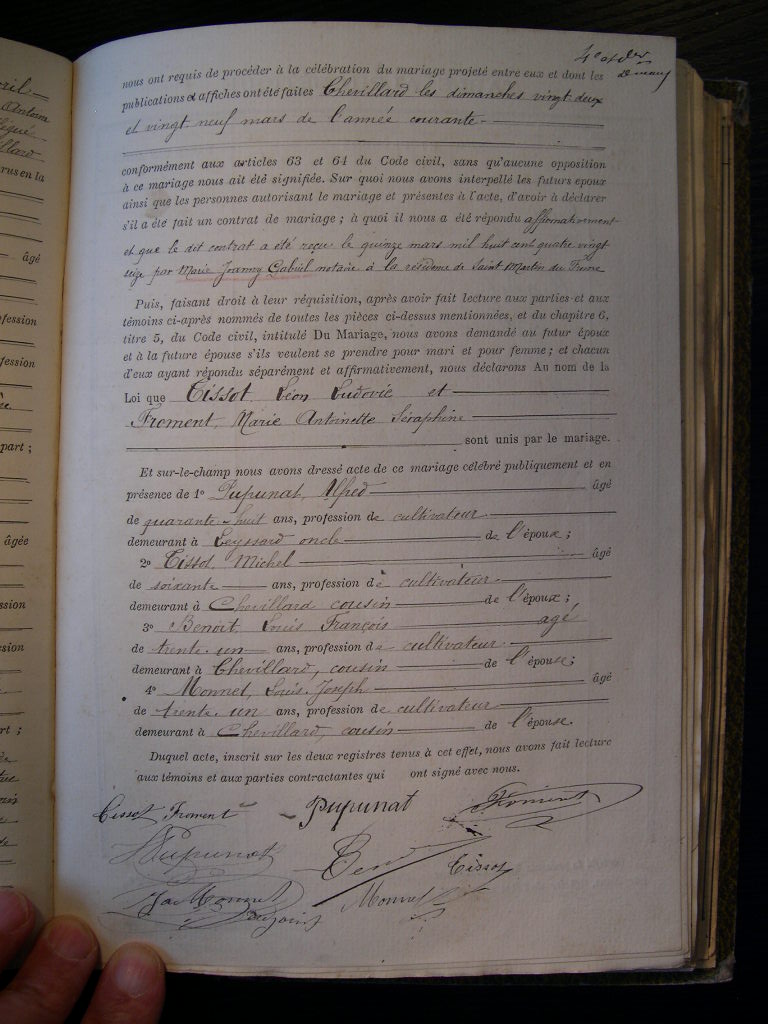 4e et der
nous ont requis de procéder à la célébration du mariage projeté entre eux et dont les
publications et affiches ont été faites Chevillard les dimanches vingt deux
et vingt neuf mars de l'année courante
conformément aux articles 63 et 64 du Code civil, sans qu'aucune opposition
à ce mariage nous ait été signifiée. Sur quoi nous avons interpellé les futurs époux
ainsi que les personnes autorisant le mariage et présentes à l'acte, d'avoir à déclarer
s'il a été fait un contrat de mariage ; à quoi il nous a été répondu affirmativement
et que le dit contrat a été reçu le quinze mars mil huit cent quatre vingt
seize par Marie Joanny Gabriel notaire à la résidence de Saint Martin du Frêne
Puis, faisant droit à leur réquisition, après avoir fait lecture aux parties et aux
témoins ci-après nommés de toutes les pièces ci-dessus mentionnées, et du chapitre 6,
titre 5, du Code civil, intitulé Du Mariage, nous avons demandé au futur époux
et à la future épouse s'ils veulent se prendre pour mari et pour femme ; et chacun
d'eux ayant répondu séparément et affirmativement, nous déclarons Au nom de la
Loi que Tissot, Léon Ludovic et
Froment, Marie Antoinette Séraphine
sont unis par le mariage.
Et sur-le-champ nous avons dressé acte de ce mariage célébré publiquement et en
présence de 1° Pupunat, Alfred âgé
de quarante-huit ans, profession de cultivateur
demeurant à Leyssard oncle de l'époux ;
2° Tissot, Michel âgé
de soixante ans, profession de cultivateur
demeurant à Chevillard cousin de l'époux ;
3° Benoit, Louis François agé
de trente un ans, profession de cultivateur
demeurant à Chevillard, cousin de l'épouse ;
4° Monnet, Louis Joseph âgé
de trente un ans, profession de cultivateur
demeurant à Chevillard, cousin de l'épouse.
Duquel acte, inscrit sur les deux registres tenus à cet effet, nous avons fait lecture
aux témoins et aux parties contractantes qui ont signé avec nous.
Tissot Froment Pupunat Froment
Pupunat Tissot
Monnet Monnet